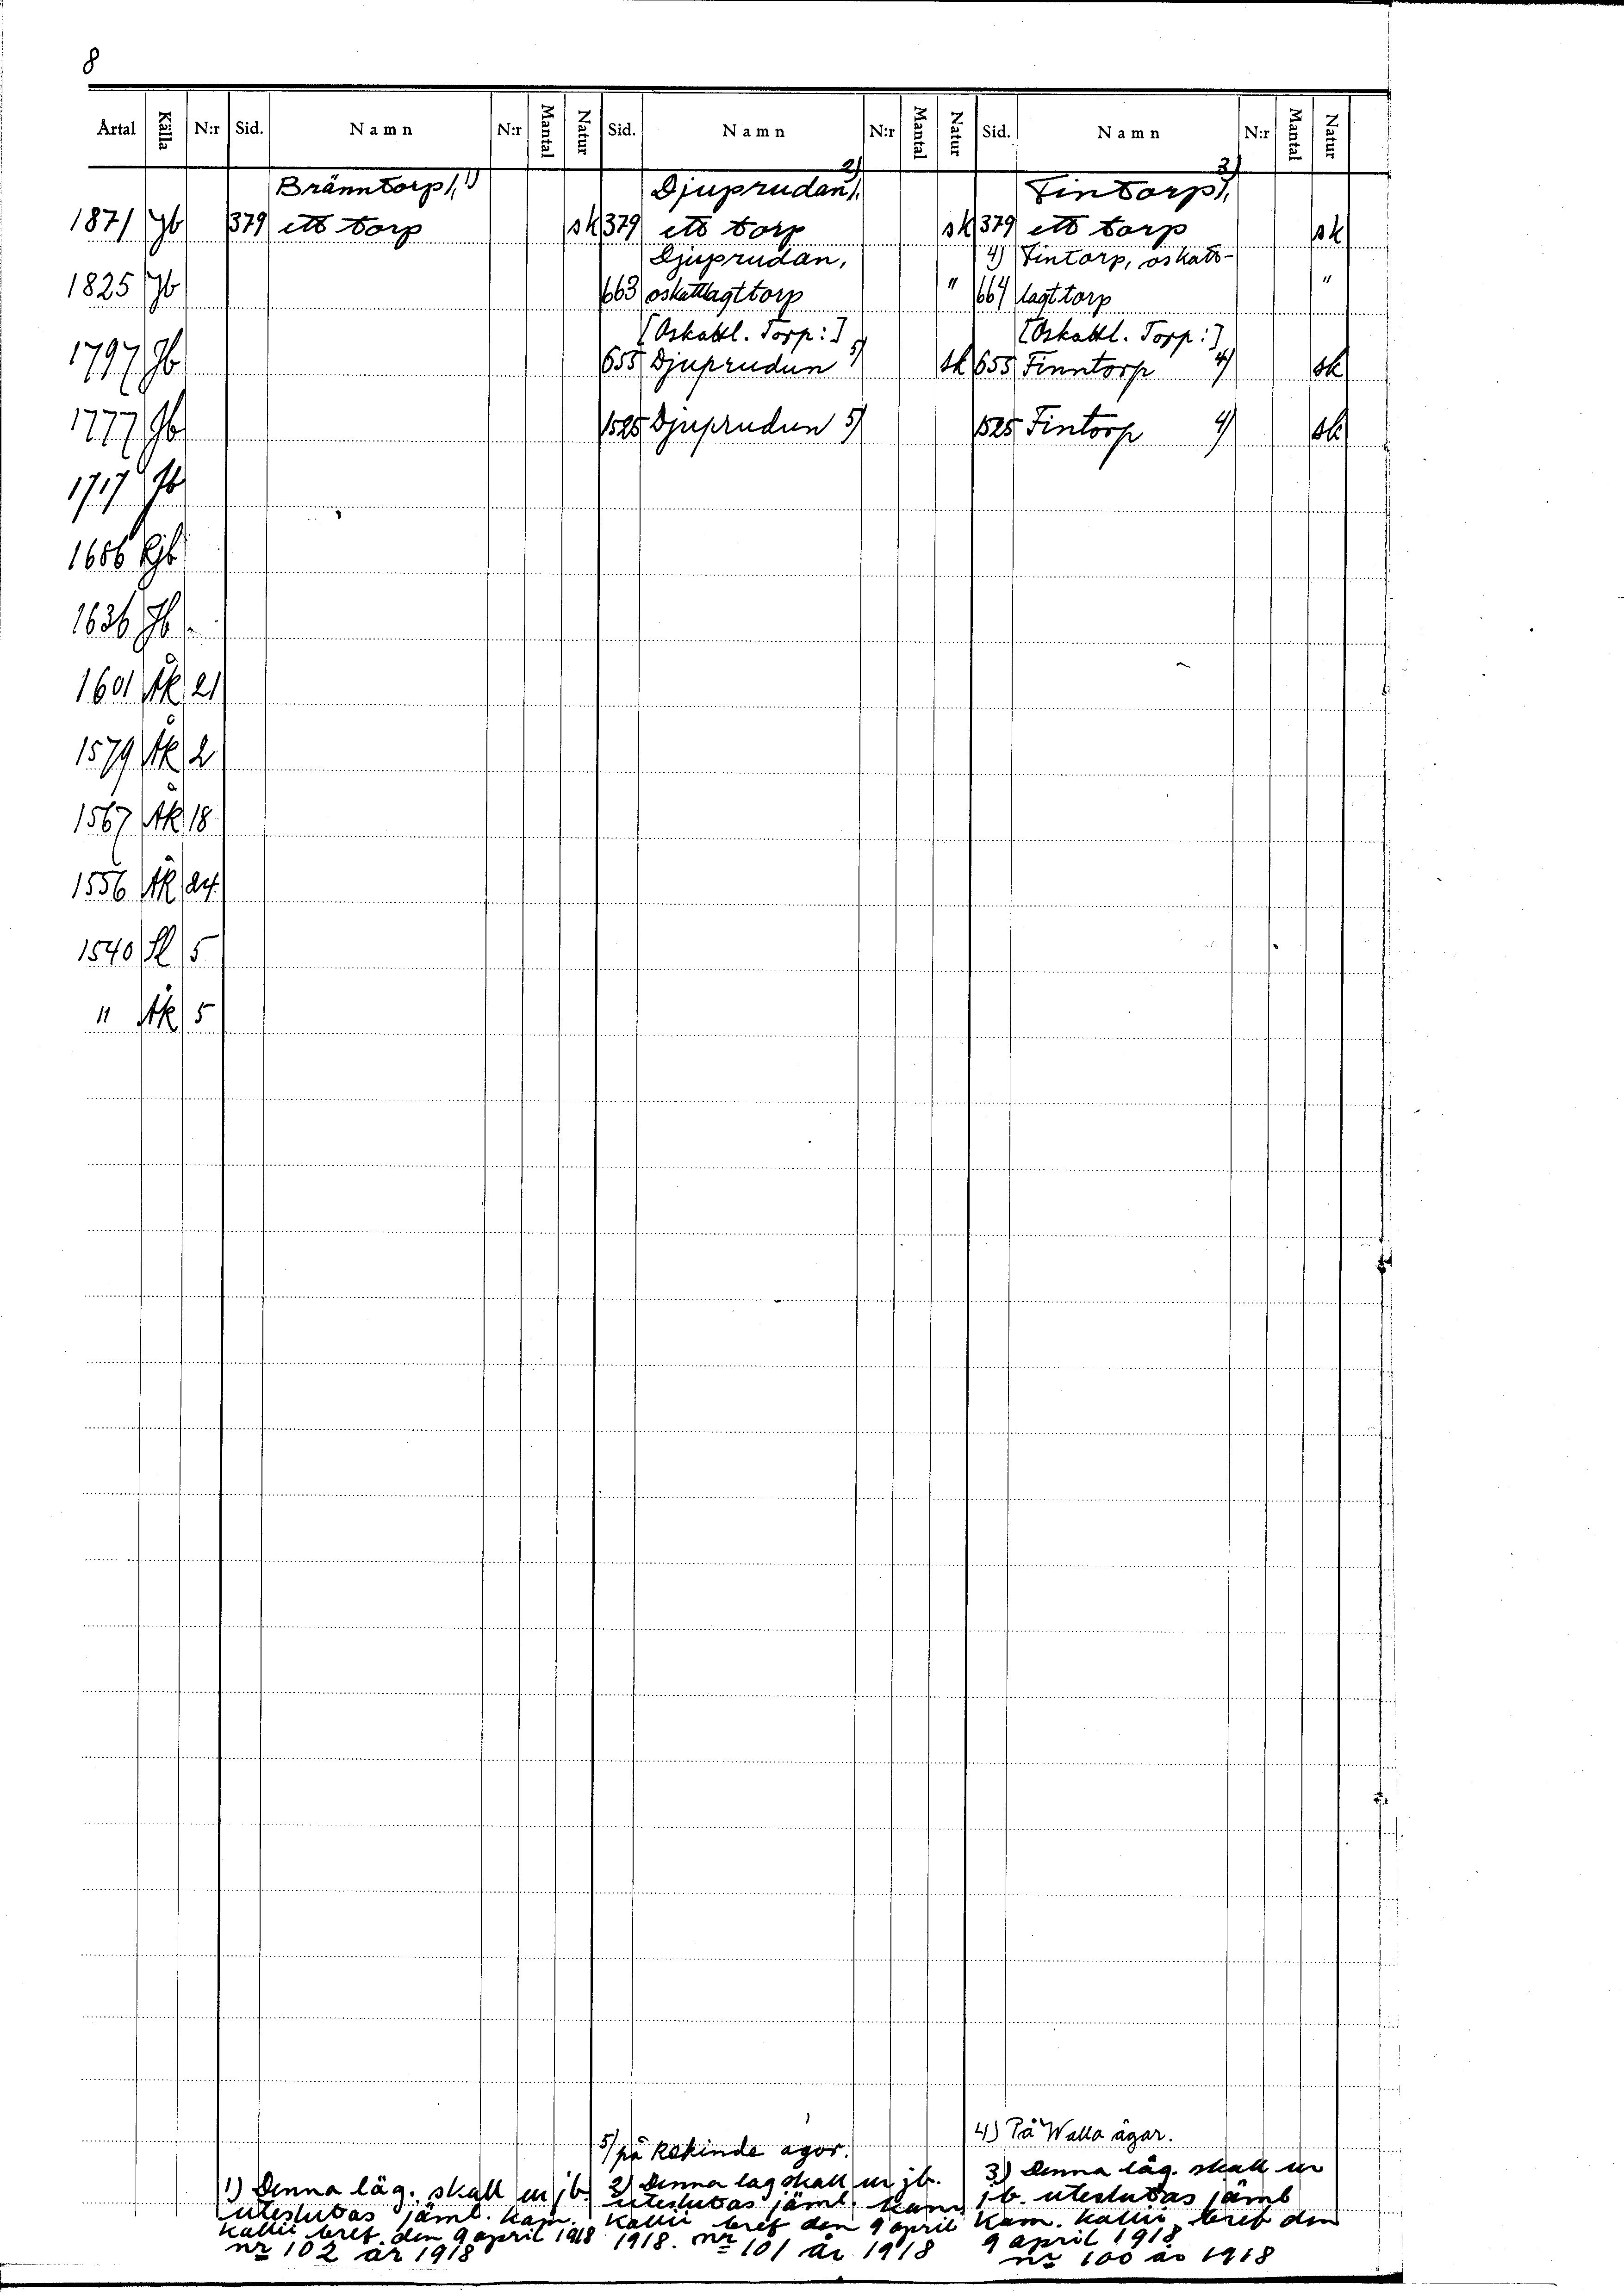 8
Årtal Källa N:r Sid. Namn N:r Mantal Natur Sid. Namn N:r Mantal Natur Sid. Namn N:r Mantal Natur
Bränntorp, 1) Djuprudan, 2) Fintorp, 3)
1871 Jb 379 ett torp sk 379 ett torp sk 379 ett torp sk
Djuprudan, 4) Fintorp, oskatt-
1825 Jb 663 oskattlagt torp " 664 lagt torp "
[Oskattl. Torp:] [Oskattl. Torp:]
1797 Jb 655 Djuprudun 5) sk 655 Finntorp 4) sk
1777 Jb 1525 Djuprudun 5) 1525 Fintorp 4) sk
1717 Jb
1686 Jb
1636 Jb
1601 Åk 21
1579 Åk 2
1567 Åk 18
1556 Åk 24
1540 Sl 5
" Åk 5
5) på Rekinde agor. 4) På Walla ägar.
1) Denna läg. skall ur jb.
uteslutas jäml. kam.
kollii bref den 9 april 1918
nr 102 år 1918
2) Denna lag skall ur jb.
uteslutas jäml. kam
kollii bref den 9 april
1918. nr 101 år 1918
3) Denna läg. skall ur
jb. uteslutas jämb
kam. kollii bref den
9 april 1918
nr 100 år 1918